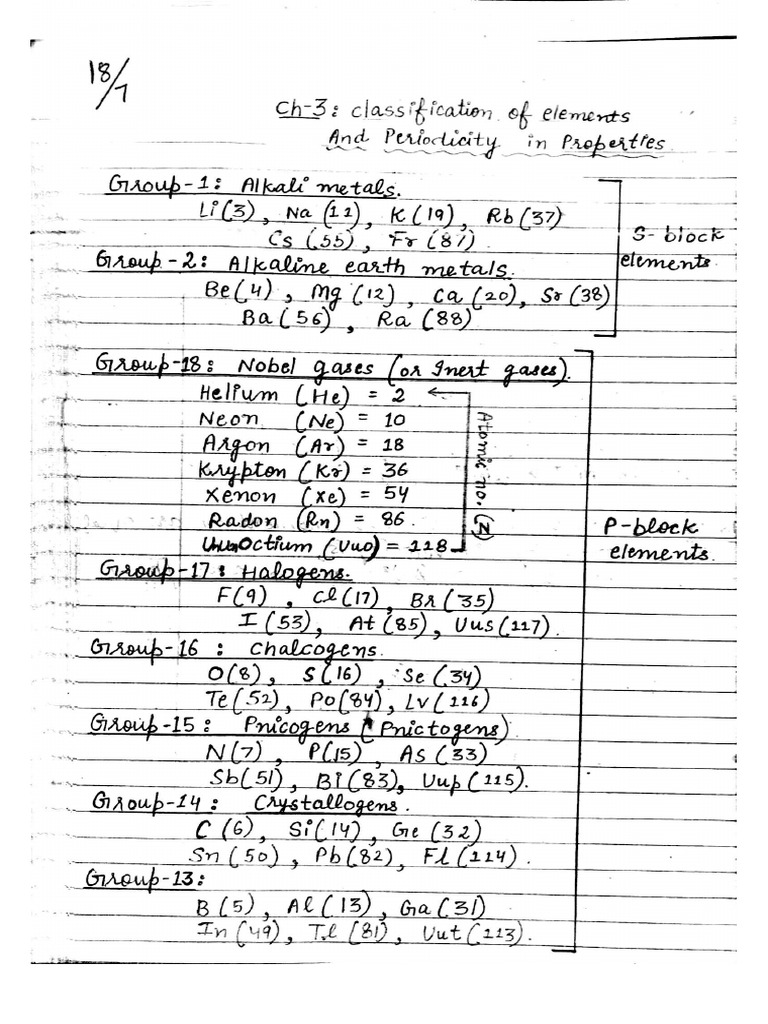 18/7
Ch-3: Classification of elements
And Periodicity in Properties
Group-1: Alkali metals.
Li(3), Na(11), K(19), Rb(37)
Cs(55), Fr(87).
S-block
elements.
Group-2: Alkaline earth metals.
Be(4), Mg(12), Ca(20), Sr(38)
Ba(56), Ra(88)
Group-18: Nobel gases (or Inert gases).
Helium (He) = 2
Neon (Ne) = 10
Argon (Ar) = 18
Krypton (Kr) = 36
Xenon (Xe) = 54
Radon (Rn) = 86.
Octium (Uuo) = 118
Atomic no. (Z)
P-block
elements.
Group-17: Halogens.
F(9), Cl(17), Br(35)
I(53), At(85), Uus(117).
Group-16: Chalcogens.
O(8), S(16), Se(34)
Te(52), Po(84), Lv(116)
Group-15: Pnicogens (Pnictogens)
N(7), P(15), As(33)
Sb(51), Bi(83), Uup(115).
Group-14: Crystallogens.
C(6), Si(14), Ge(32)
Sn(50), Pb(82), Fl(114).
Group-13:
B(5), Al(13), Ga(31)
In(49), Tl(81), Uut(113).